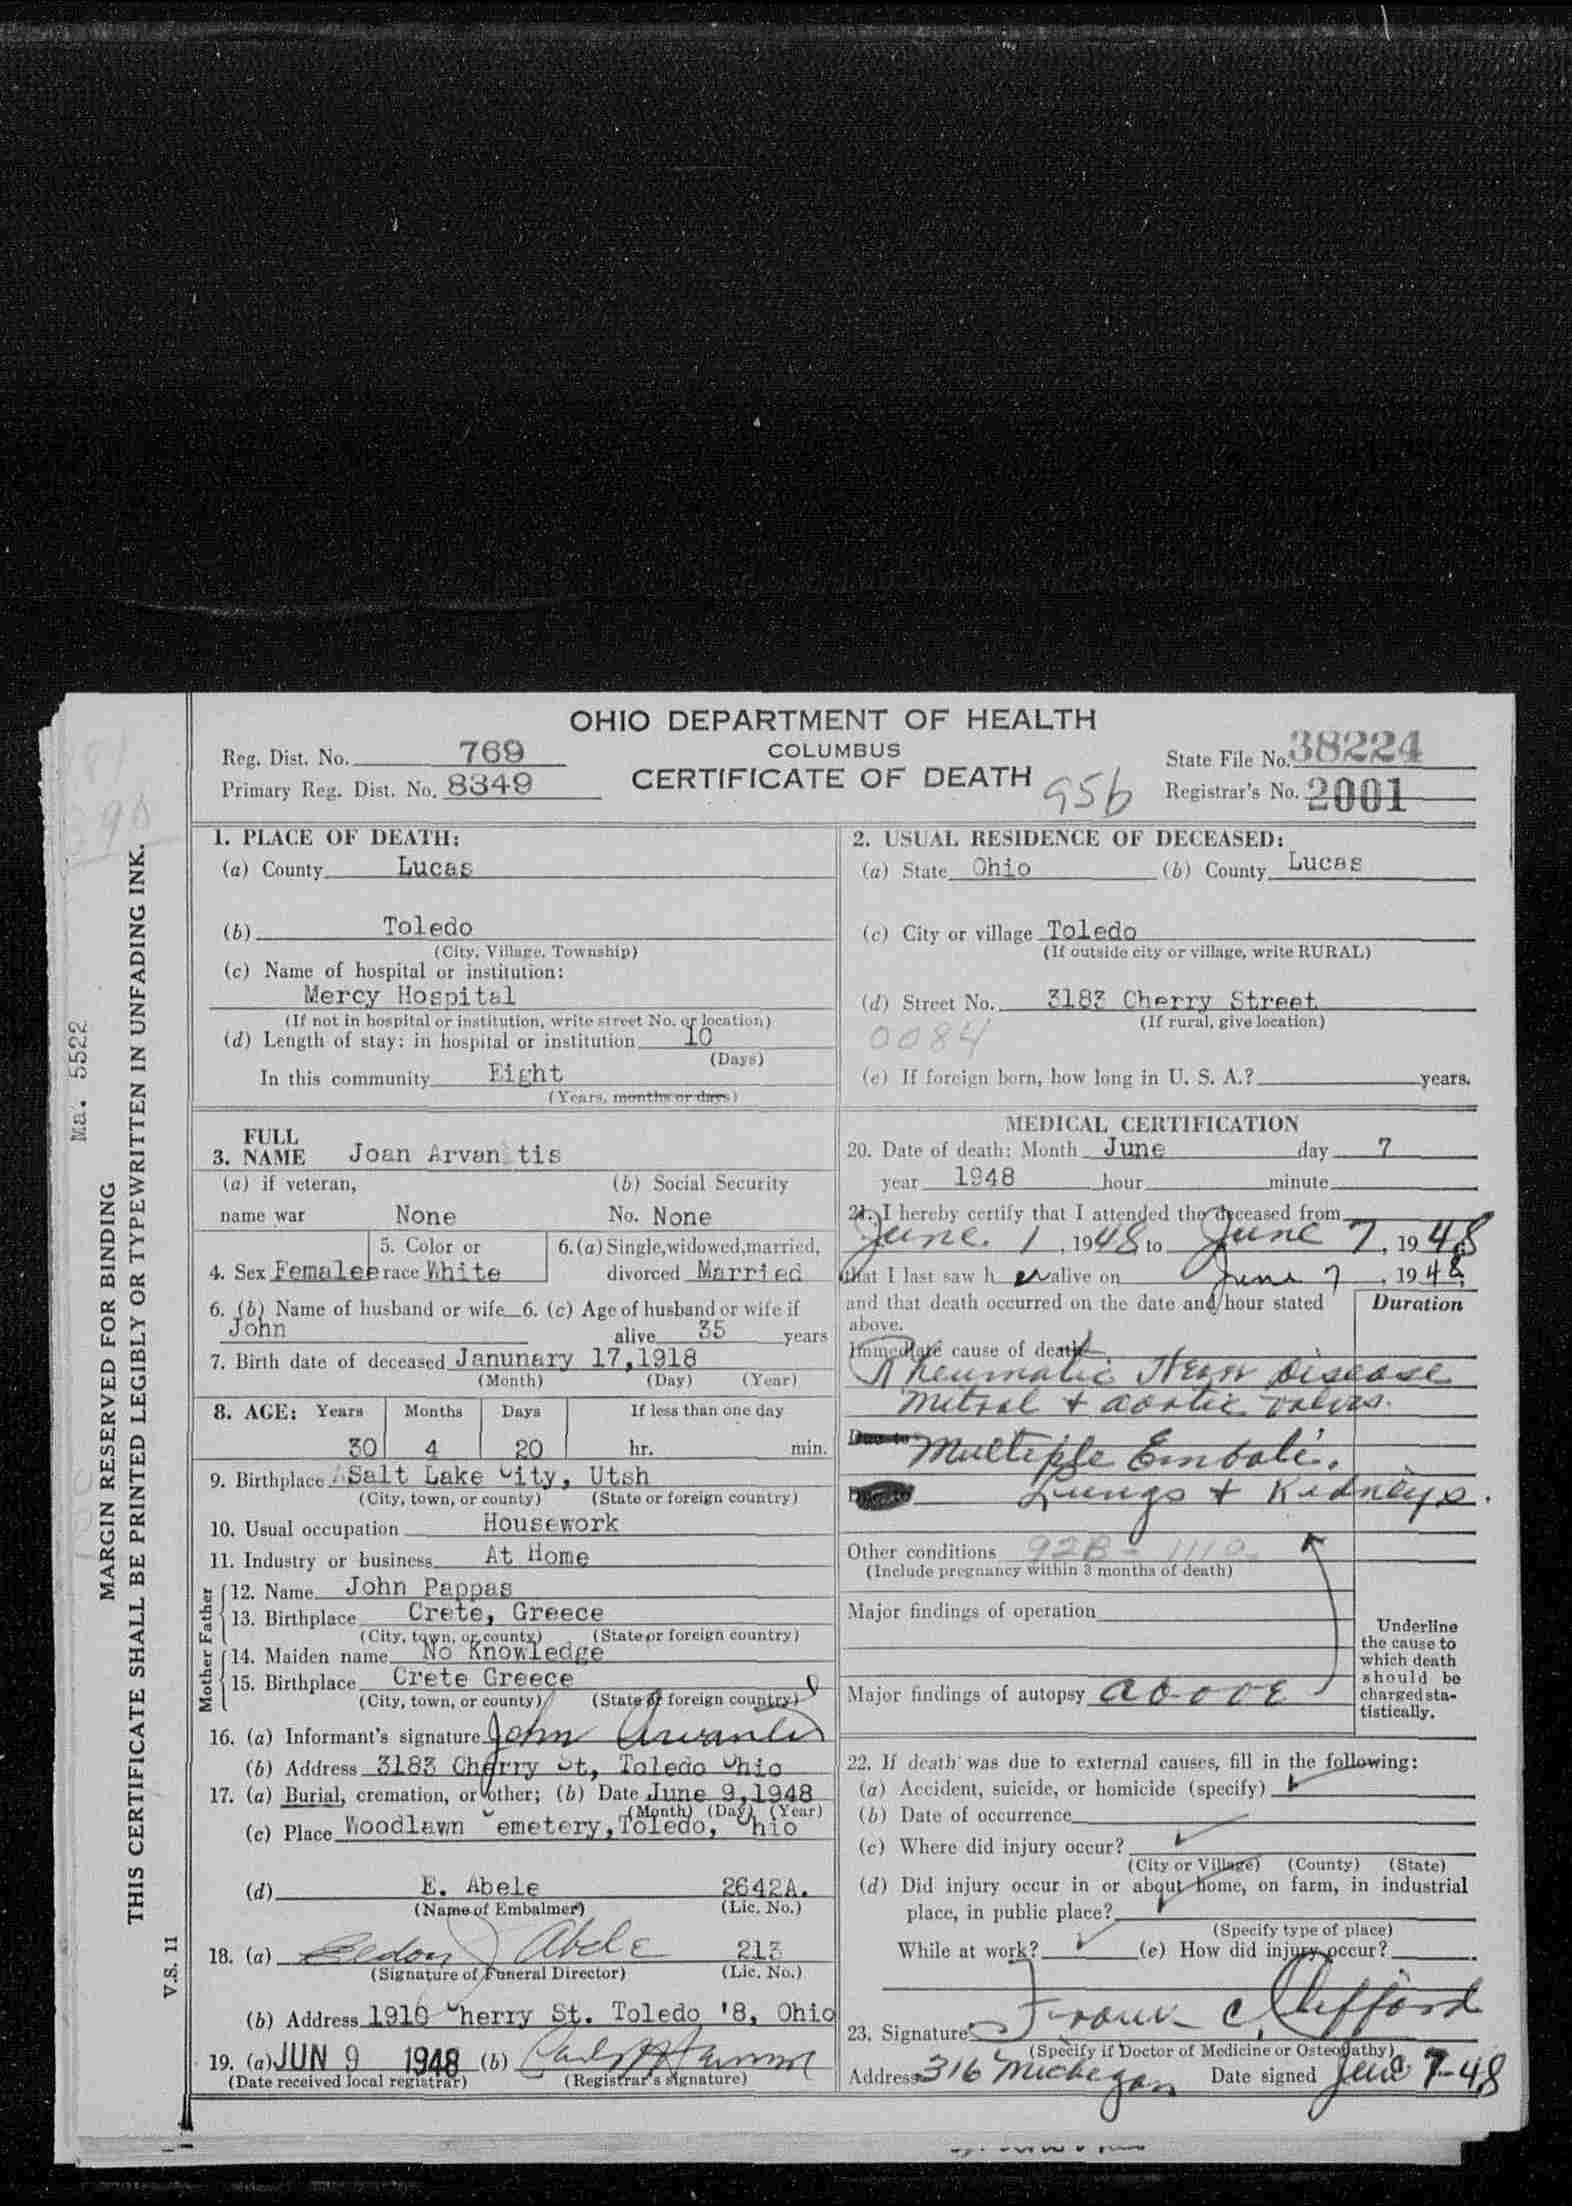 OHIO DEPARTMENT OF HEALTH
COLUMBUS
CERTIFICATE OF DEATH 95b
Reg. Dist. No. 769
Primary Reg. Dist. No. 8349
State File No. 38224
Registrar's No. 2001
1. PLACE OF DEATH:
(a) County Lucas
(b) Toledo
(City, Village, Township)
(c) Name of hospital or institution:
Mercy Hospital
(If not in hospital or institution, write street No. or location)
(d) Length of stay: in hospital or institution 10
(Days)
In this community Eight
(Years, months or days)
2. USUAL RESIDENCE OF DECEASED:
(a) State Ohio (b) County Lucas
(c) City or village Toledo
(If outside city or village, write RURAL)
(d) Street No. 3183 Cherry Street
(If rural, give location)
0084
(e) If foreign born, how long in U. S. A.? years.
3. FULL NAME Joan Arvan tis
(a) if veteran, (b) Social Security
name war None No. None
4. Sex Female 5. Color or race White 6. (a) Single, widowed, married, divorced Married
6. (b) Name of husband or wife 6. (c) Age of husband or wife if
John alive 35 years
7. Birth date of deceased Janunary 17,1918
(Month) (Day) (Year)
8. AGE: Years Months Days If less than one day
30 4 20 hr. min.
9. Birthplace Salt Lake City, Utsh
(City, town, or county) (State or foreign country)
10. Usual occupation Housework
11. Industry or business At Home
Father
12. Name John Pappas
13. Birthplace Crete, Greece
(City, town, or county) (State or foreign country)
Mother
14. Maiden name No Knowledge
15. Birthplace Crete Greece
(City, town, or county) (State or foreign country)
16. (a) Informant's signature John Arvanitis
(b) Address 3183 Cherry St, Toledo Ohio
17. (a) Burial, cremation, or other; (b) Date June 9,1948
(Month) (Day) (Year)
(c) Place Woodlawn Cemetery, Toledo, Ohio
(d) E. Abele 2642A.
(Name of Embalmer) (Lic. No.)
18. (a) Abele 213
(Signature of Funeral Director) (Lic. No.)
(b) Address 1910 Cherry St. Toledo '8, Ohio
19. (a) JUN 9 1948 (b)
(Date received local registrar) (Registrar's signature)
MEDICAL CERTIFICATION
20. Date of death: Month June day 7
year 1948 hour minute
21. I hereby certify that I attended the deceased from
June 1, 1948 to June 7, 1948
that I last saw her alive on June 7, 1948,
and that death occurred on the date and hour stated above.
Duration
Immediate cause of death
Rheumatic Heart Disease
Mitral + aortic valves.
Due to Multiple Emboli.
Due to Lungs + Kidneys.
Other conditions 92B - 111
(Include pregnancy within 3 months of death)
Major findings of operation
Major findings of autopsy above
Underline the cause to which death should be charged statistically.
22. If death was due to external causes, fill in the following:
(a) Accident, suicide, or homicide (specify)
(b) Date of occurrence
(c) Where did injury occur?
(City or Village) (County) (State)
(d) Did injury occur in or about home, on farm, in industrial
place, in public place?
(Specify type of place)
While at work? (e) How did injury occur?
23. Signature Frank C. Clifford
(Specify if Doctor of Medicine or Osteopathy)
Address 316 Michegan Date signed June 7-48
Ma. 5522
MARGIN RESERVED FOR BINDING
THIS CERTIFICATE SHALL BE PRINTED LEGIBLY OR TYPEWRITTEN IN UNFADING INK.
V.S. 11